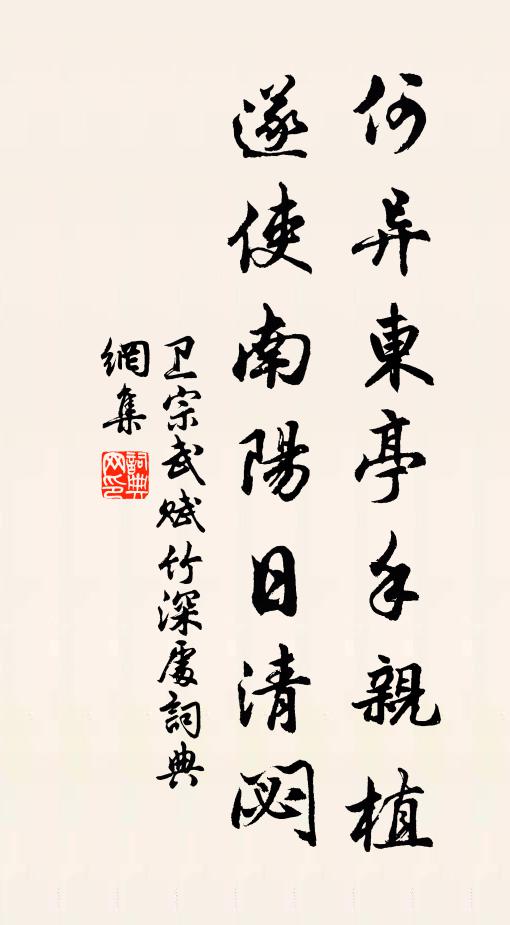 何异東亭手親植
遂使南陽日清閟
卫宗武赋竹深處詞典
網集
詞典網印